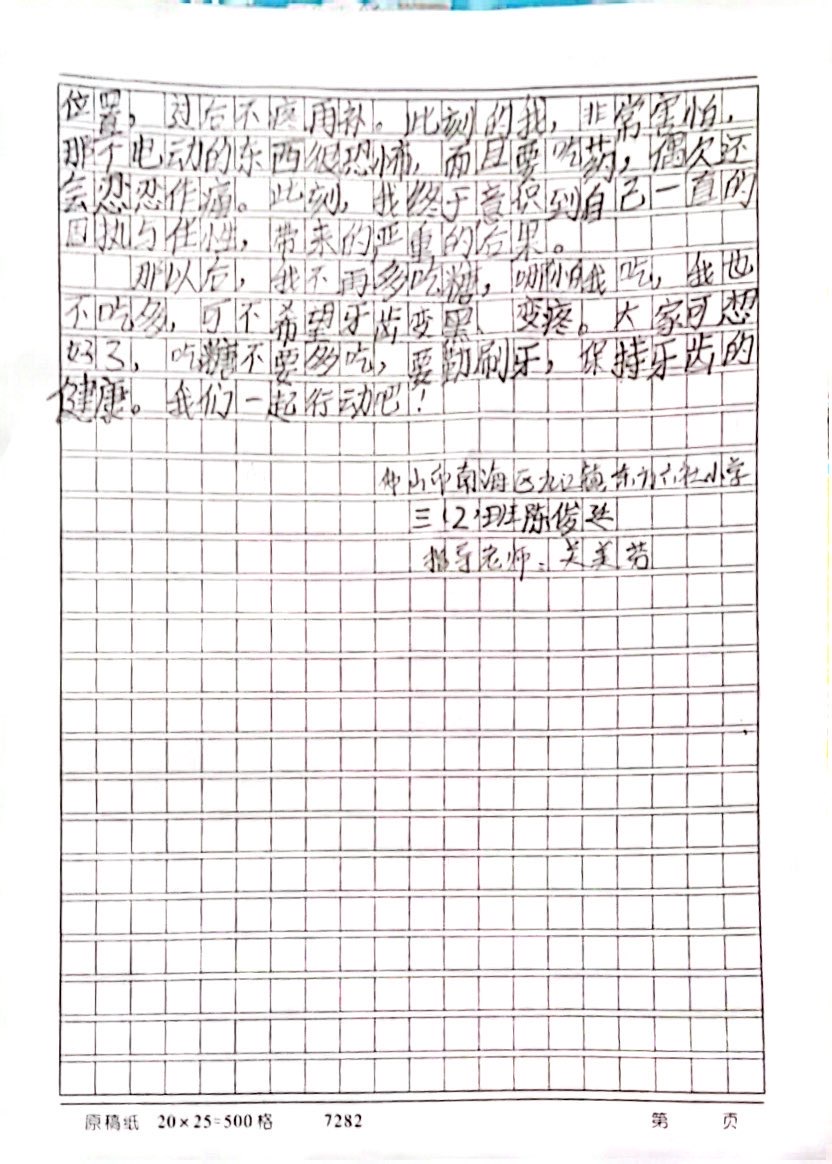 位置，过后不疼再补。此刻的我，非常害怕，
那个电动的东西很恐怖，而且要吃药，偶欠还
会忍忍作痛。此刻，我终于意识到自己一直的
固执与任性，带来的严重的后果。
那以后，我不再多吃糖，哪怕我吃，我也
不吃多，可不希望牙齿变黑、变疼。大家可想
好了，吃糖不要多吃，要勤刷牙，保持牙齿的
健康。我们一起行动吧！
佛山市南海区九江镇东方小学
三（2）班陈俊延
指导老师：关美芳
原稿纸 20×25=500格 7282 第 页